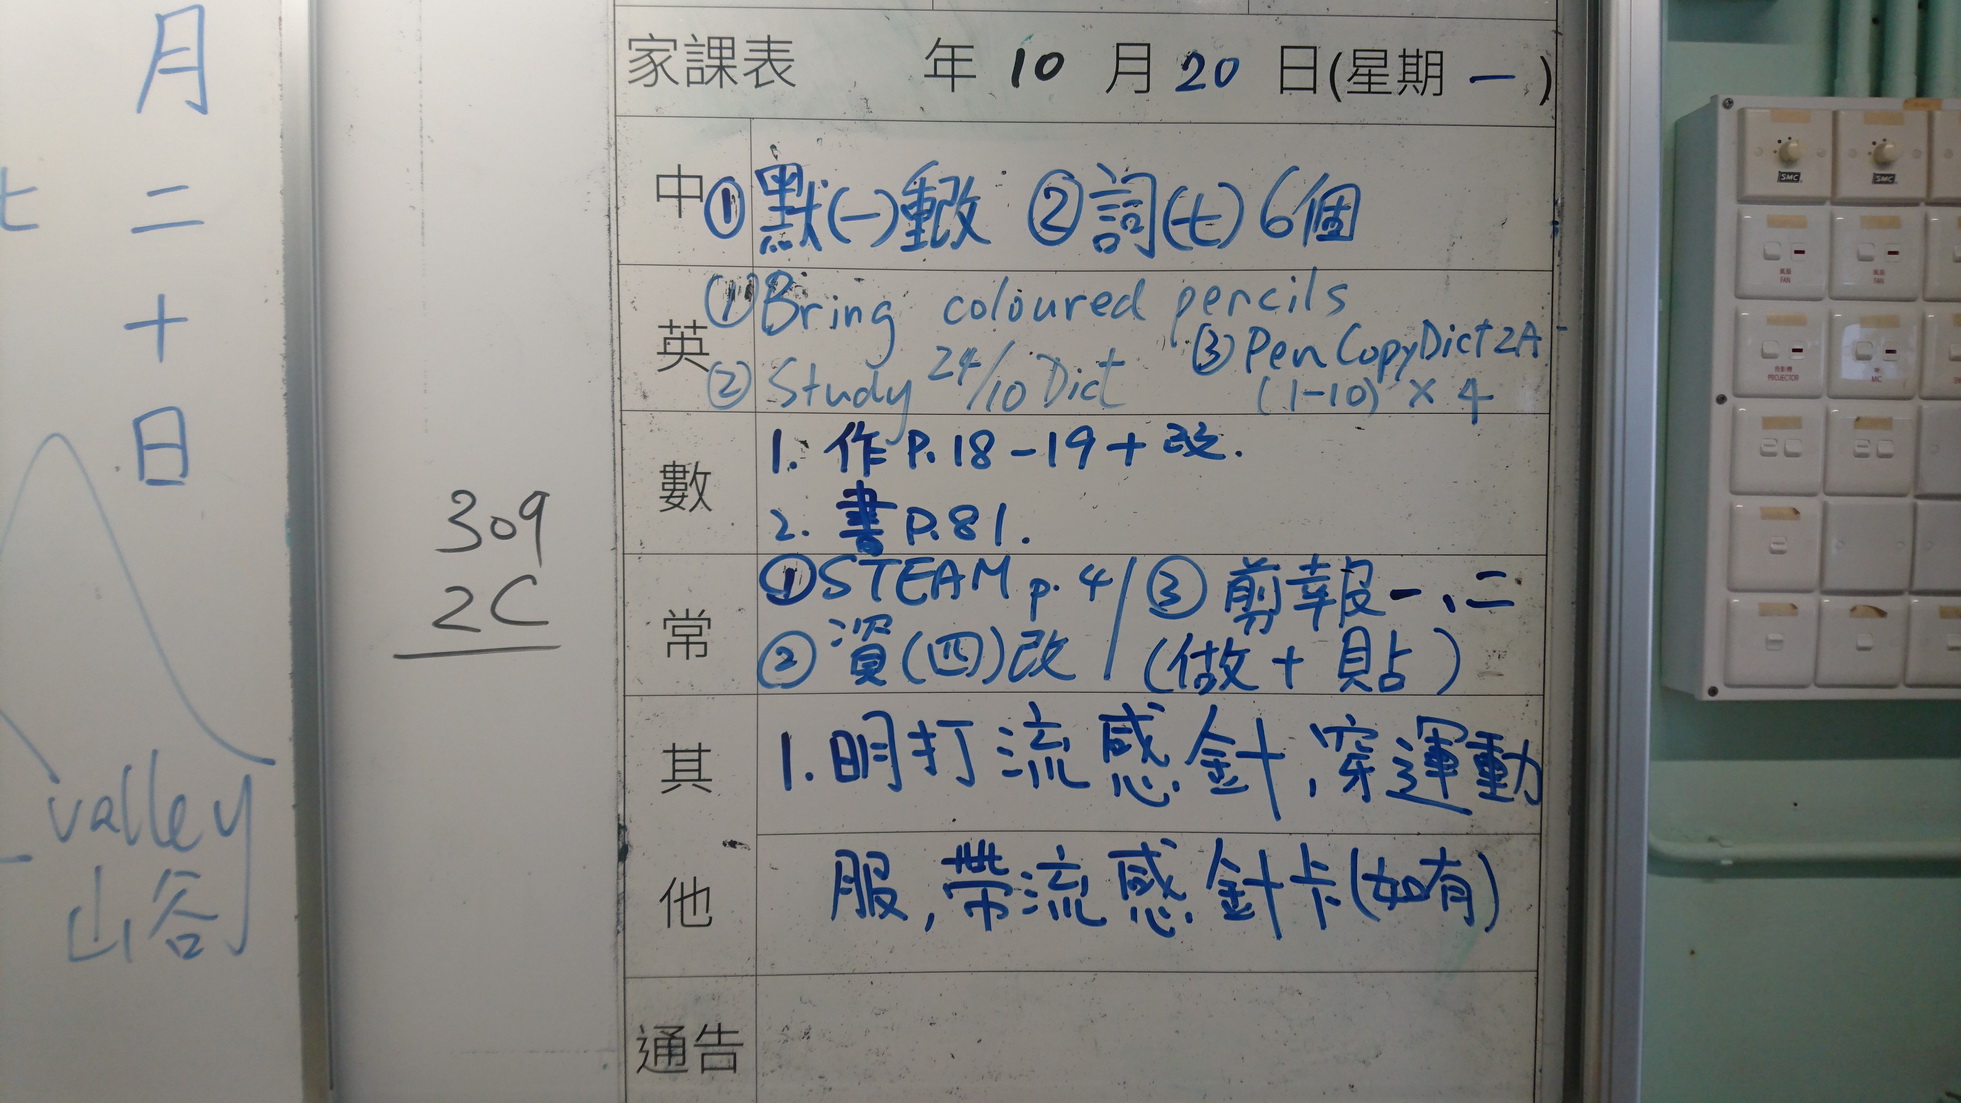 月二十日
七
valley
山谷
309
2C
家課表 年 10 月 20 日(星期 一 )
中 ①默(一)重改 ②詞(七) 6個
英 ①Bring coloured pencils
②Study 24/10 Dict ③Pen Copy Dict 2A
(1-10) × 4
數 1. 作P.18-19+改.
2. 書P.81.
常 ①STEAM p.4 / ③剪報一、二
②資(四)改 / (做+貼)
其他 1.明打流感針,穿運動
服,帶流感針卡(如有)
通告
SMC SMC
FAN FAN
PROJECTOR MIC